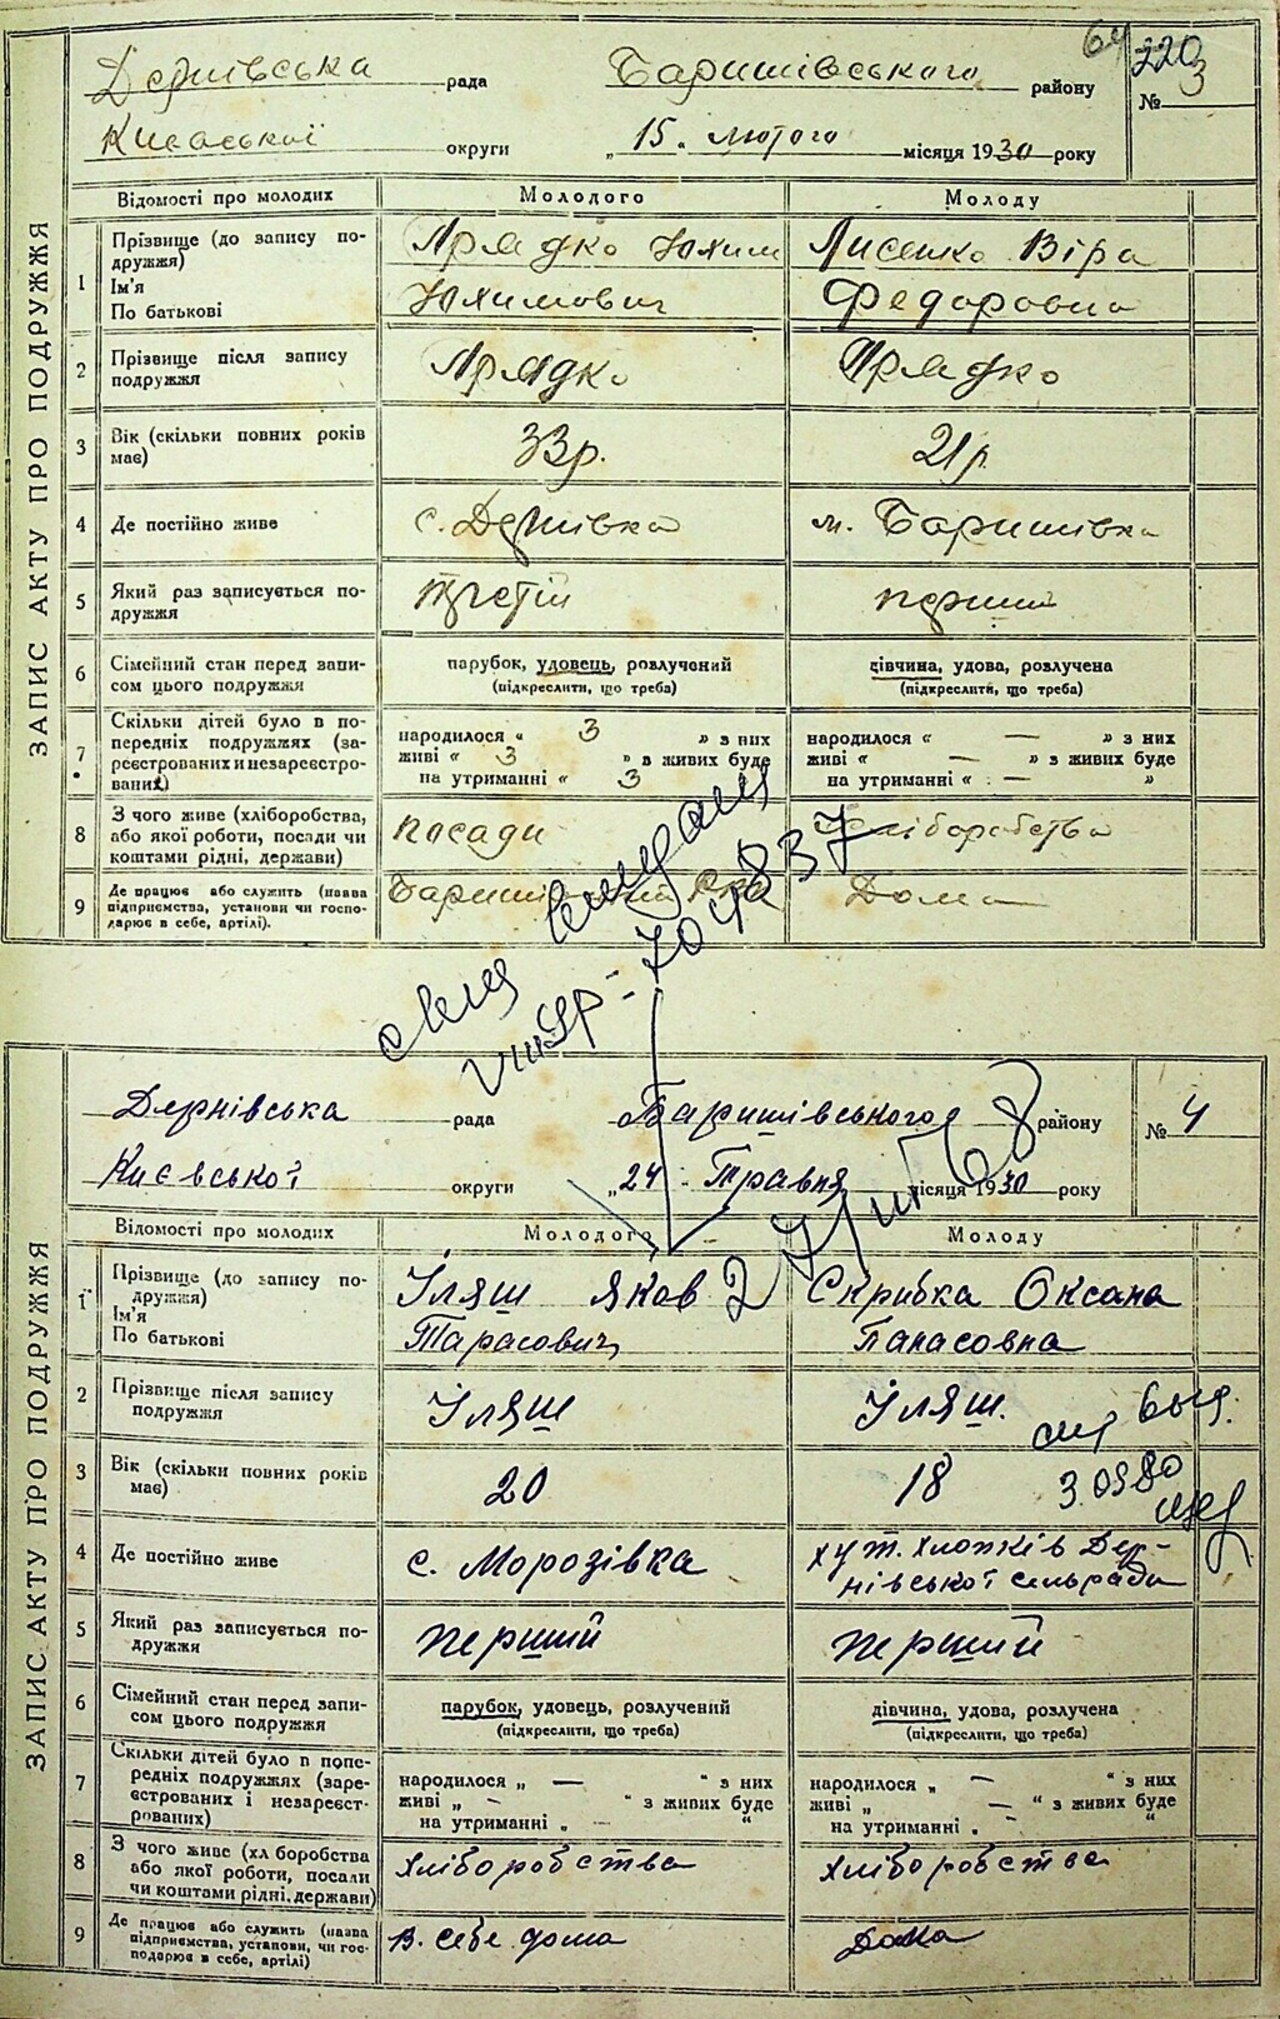 64
220
Дернівська рада Баришівського району
№ 3
Києвської округи „15„ лютого місяця 1930 року
ЗАПИС АКТУ ПРО ПОДРУЖЖЯ
Відомості про молодих Молодого Молоду
1 Прізвище (до запису по-
дружжя)
Ім'я
По батькові
Прядко Юхим
Юхимович
Лисенко Віра
Федоровна
2 Прізвище після запису
подружжя
Прядко
Прядко
3 Вік (скільки повних років
має)
33р.
21р.
4 Де постійно живе
с. Дернівка
м. Баришівка
5 Який раз записується по-
дружжя
третій
перший
6 Сімейний стан перед запи-
сом цього подружжя
парубок, удовець, розлучений
(підкреслити, що треба)
дівчина, удова, розлучена
(підкреслити, що треба)
7 Скільки дітей було в по-
передніх подружжях (за-
реєстрованих и незареєстро-
ваних)
народилося „ 3 » з них
живі « 3 » в живих буде
на утриманні « 3
народилося « — » з них
живі « — » з живих буде
на утриманні « — »
8 З чого живе (хліборобства,
або якої роботи, посади чи
коштами рідні, держави)
посади
хліборобства
9 Де працює або служить (назва
підприємства, установи чи госпо-
дарює в себе, артілі).
Дома
704837
Дернівська рада Баришівського району
№ 4
Києвської округи „24 „ Травня місяця 1930 року
ЗАПИС АКТУ ПРО ПОДРУЖЖЯ
Відомості про молодих Молодого Молоду
1 Прізвище (до запису по-
дружжя)
Ім'я
По батькові
Іляш Яков
Тарасович
Скрибка Оксана
Панасовна
2 Прізвище після запису
подружжя
Іляш
Іляш.
3 Вік (скільки повних років
має)
20
18
3.0980
4 Де постійно живе
с. Морозівка
хут. Хлопків Дер-
нівської сельради
5 Який раз записується по-
дружжя
перший
перший
6 Сімейний стан перед запи-
сом цього подружжя
парубок, удовець, розлучений
(підкреслити, що треба)
дівчина, удова, розлучена
(підкреслити, що треба)
7 Скільки дітей було в попе-
редніх подружжях (заре-
єстрованих і незареєст-
рованих)
народилося „ — “ з них
живі „ — “ з живих буде
на утриманні „ — “
народилося „ — “ з них
живі „ — “ з живих буде
на утриманні „ — “
8 З чого живе (хл боробства
або якої роботи, посади
чи коштами рідні, держави)
хліборобства
хліборобства
9 Де працює або служить (назва
підприємства, установи, чи гос-
подарює в себе, артілі)
в. себе дома
Дома